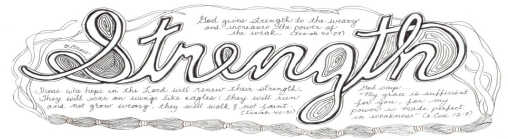 God gives strength to the weary
and increases the power of
the weak. (Isaiah 40:29)
Strength
Those who hope in the Lord will renew their strength.
They will soar on wings like eagles; they will run
and not grow weary, they will walk & not faint.
(Isaiah 40:31)
God says:
"My grace is sufficient
for you, for my
power is made perfect
in weakness" (2 Cor. 12:9)